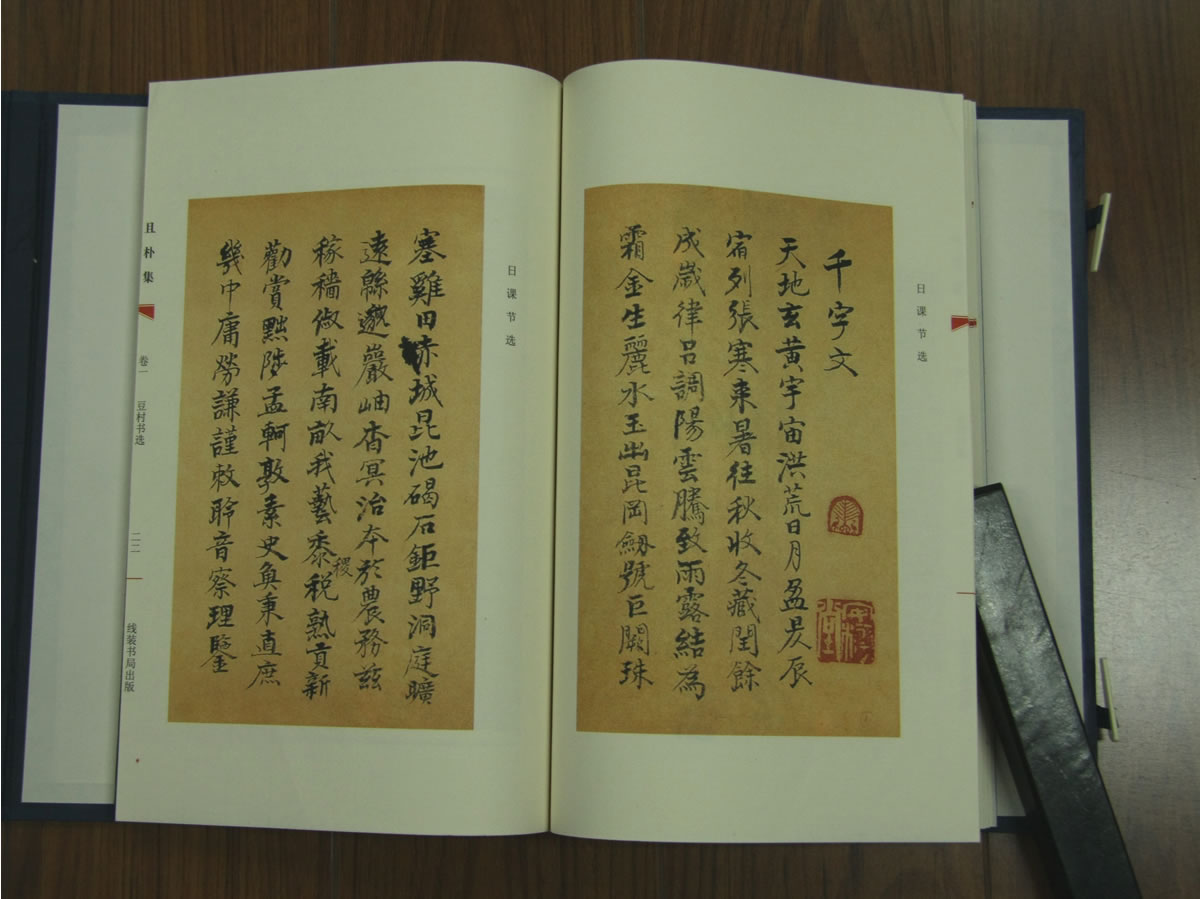 日课节选
千字文
天地玄黄宇宙洪荒日月盈昃辰
宿列張寒来暑往秋收冬藏閏餘
成歲律吕調陽雲騰致雨露結為
霜金生麗水玉出昆岡劔號巨闕珠
日课节选
塞雞田赤城昆池碣石鉅野洞庭曠
遠緜邈巖岫杳冥治本於農務兹
稼穡俶載南畝我藝黍稷税熟貢新
勸賞黜陟孟軻敦素史魚秉直庶
幾中庸勞謙謹敕聆音察理鑒
且朴集
卷一
豆村书选
二二
线装书局出版